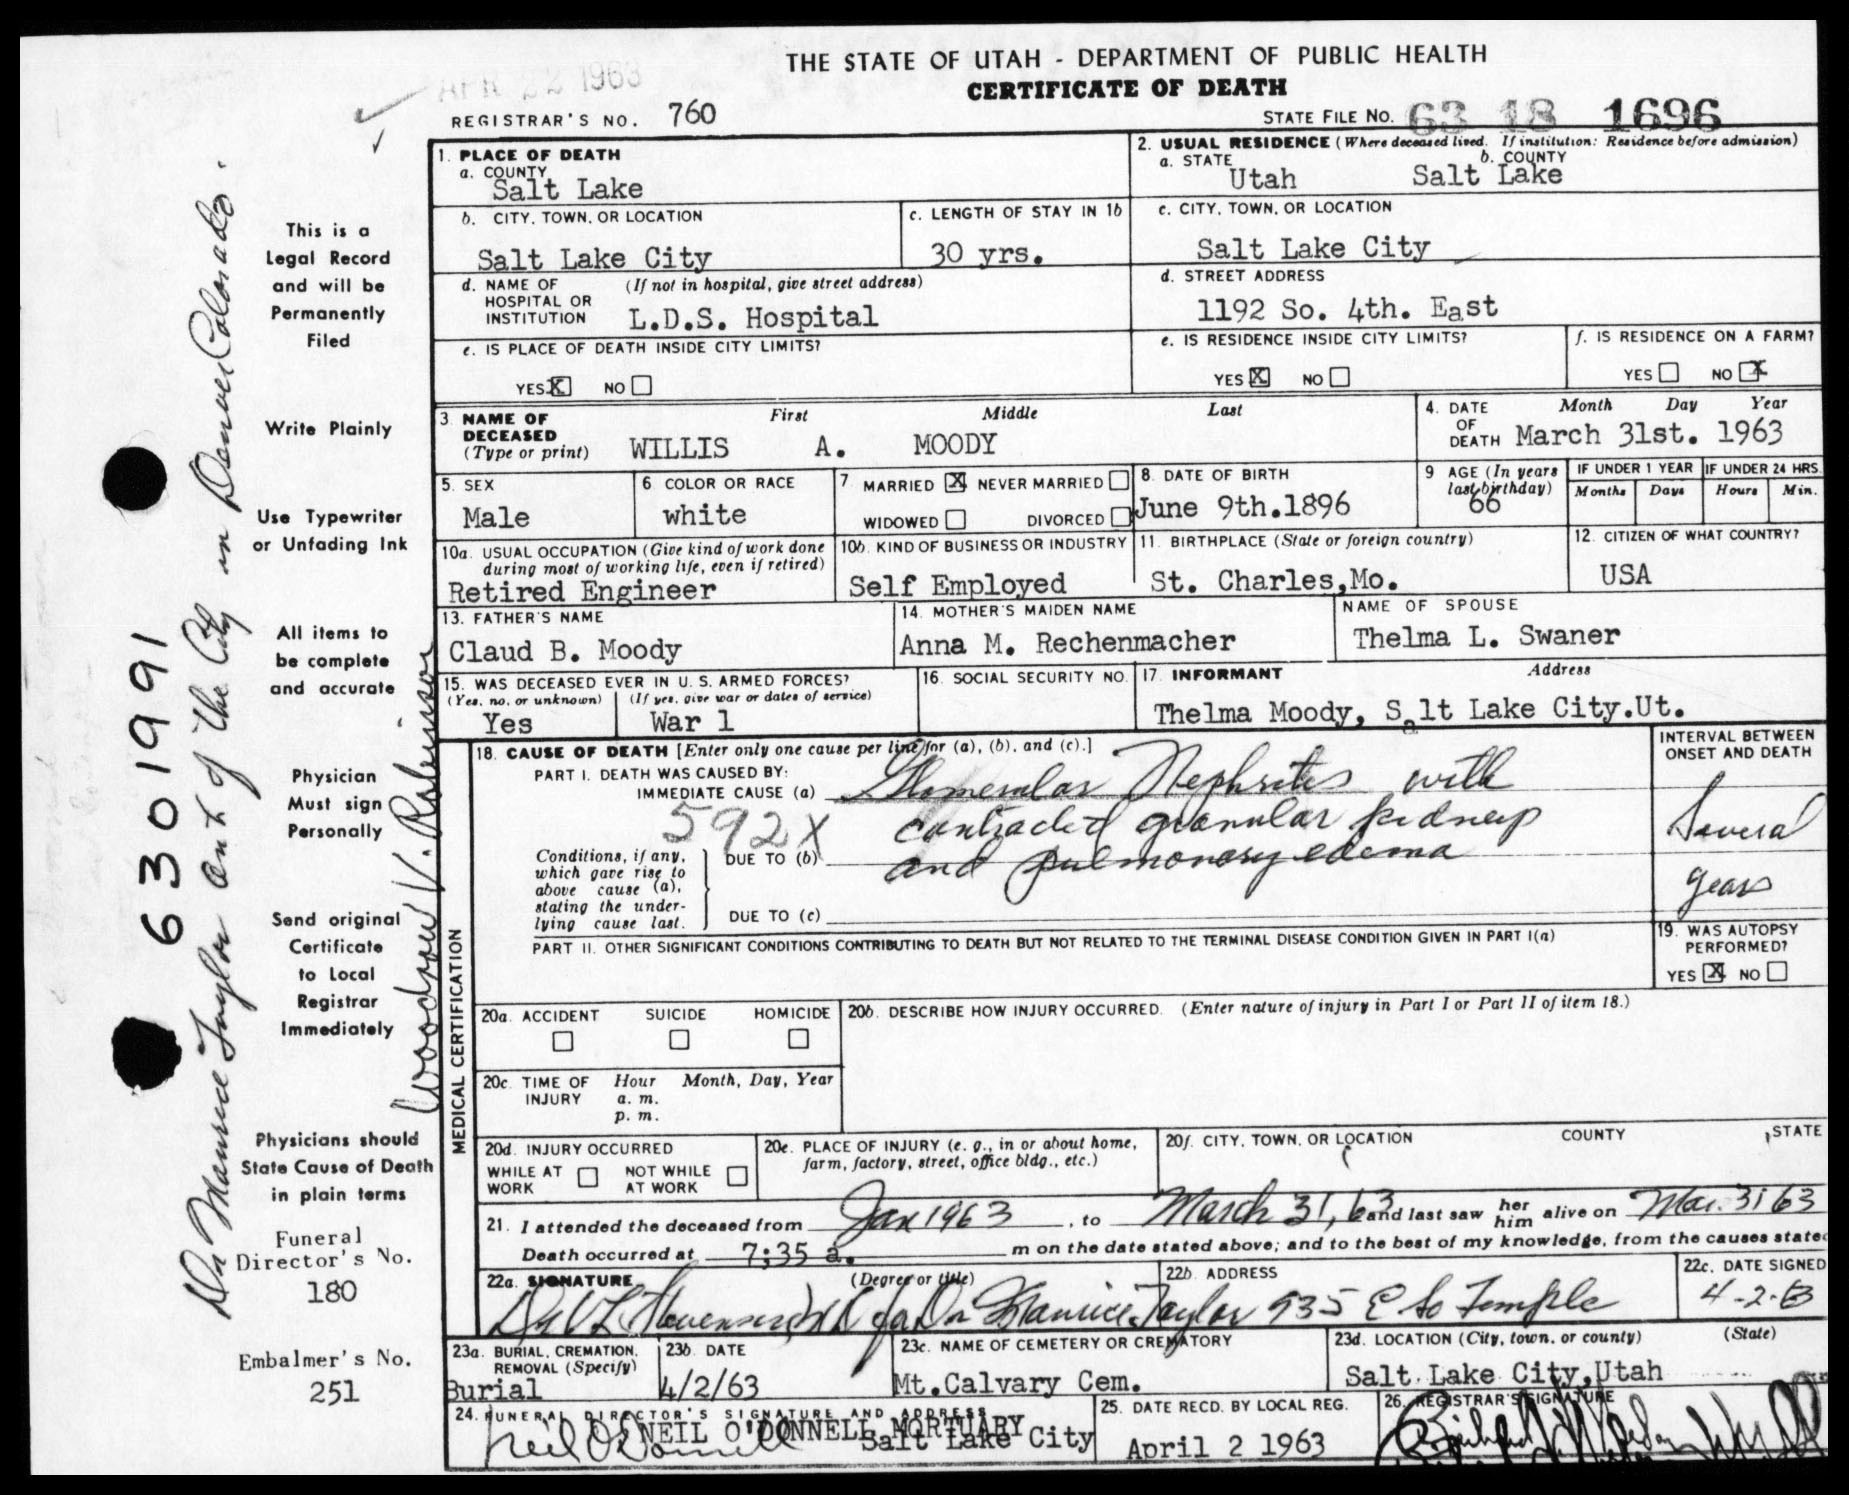 THE STATE OF UTAH - DEPARTMENT OF PUBLIC HEALTH
CERTIFICATE OF DEATH
APR 22 1963
REGISTRAR'S NO. 760
STATE FILE NO. 63 18 1696
1. PLACE OF DEATH
a. COUNTY
Salt Lake
2. USUAL RESIDENCE (Where deceased lived. If institution: Residence before admission)
a. STATE b. COUNTY
Utah Salt Lake
b. CITY, TOWN, OR LOCATION
Salt Lake City
c. LENGTH OF STAY IN 1b
30 yrs.
c. CITY, TOWN, OR LOCATION
Salt Lake City
d. NAME OF (If not in hospital, give street address)
HOSPITAL OR
INSTITUTION L.D.S. Hospital
d. STREET ADDRESS
1192 So. 4th. East
e. IS PLACE OF DEATH INSIDE CITY LIMITS?
YES X NO
e. IS RESIDENCE INSIDE CITY LIMITS?
YES X NO
f. IS RESIDENCE ON A FARM?
YES NO X
3 NAME OF First Middle Last
DECEASED
(Type or print) WILLIS A. MOODY
4. DATE Month Day Year
OF
DEATH March 31st. 1963
5. SEX
Male
6 COLOR OR RACE
white
7 MARRIED X NEVER MARRIED
WIDOWED DIVORCED
8 DATE OF BIRTH
June 9th.1896
9 AGE (In years
last birthday)
66
IF UNDER 1 YEAR IF UNDER 24 HRS.
Months Days Hours Min.
10a. USUAL OCCUPATION (Give kind of work done
during most of working life, even if retired)
Retired Engineer
10b. KIND OF BUSINESS OR INDUSTRY
Self Employed
11. BIRTHPLACE (State or foreign country)
St. Charles,Mo.
12. CITIZEN OF WHAT COUNTRY?
USA
13. FATHER'S NAME
Claud B. Moody
14. MOTHER'S MAIDEN NAME
Anna M. Rechenmacher
NAME OF SPOUSE
Thelma L. Swaner
15. WAS DECEASED EVER IN U.S. ARMED FORCES?
(Yes, no, or unknown) (If yes, give war or dates of service)
Yes War 1
16. SOCIAL SECURITY NO.
17. INFORMANT Address
Thelma Moody, Salt Lake City.Ut.
MEDICAL CERTIFICATION
18. CAUSE OF DEATH [Enter only one cause per line for (a), (b), and (c).]
PART I. DEATH WAS CAUSED BY:
IMMEDIATE CAUSE (a) Glomerular Nephritis with
592X contracted granular kidneys
Conditions, if any,
which gave rise to
above cause (a),
stating the under-
lying cause last.
DUE TO (b) and pulmonary edema
DUE TO (c)
INTERVAL BETWEEN
ONSET AND DEATH
Several
years
PART II. OTHER SIGNIFICANT CONDITIONS CONTRIBUTING TO DEATH BUT NOT RELATED TO THE TERMINAL DISEASE CONDITION GIVEN IN PART I(a)
19. WAS AUTOPSY
PERFORMED?
YES X NO
20a. ACCIDENT SUICIDE HOMICIDE
20b. DESCRIBE HOW INJURY OCCURRED. (Enter nature of injury in Part I or Part II of item 18.)
20c. TIME OF Hour Month, Day, Year
INJURY a. m.
p. m.
20d. INJURY OCCURRED
WHILE AT NOT WHILE
WORK AT WORK
20e. PLACE OF INJURY (e. g., in or about home,
farm, factory, street, office bldg., etc.)
20f. CITY, TOWN, OR LOCATION COUNTY STATE
21. I attended the deceased from Jan 1963, to March 31, 63 and last saw her him alive on Mar. 31 63
Death occurred at 7:35 a. m on the date stated above; and to the best of my knowledge, from the causes stated
22a. SIGNATURE (Degree or title)
Dr V L Stevenson MD for Dr Maurice Taylor
22b. ADDRESS
935 E So Temple
22c. DATE SIGNED
4-2-63
23a. BURIAL, CREMATION,
REMOVAL (Specify)
Burial
23b. DATE
4/2/63
23c. NAME OF CEMETERY OR CREMATORY
Mt.Calvary Cem.
23d. LOCATION (City, town, or county) (State)
Salt Lake City,Utah
24. FUNERAL DIRECTOR'S SIGNATURE AND ADDRESS
NEIL O'DONNELL MORTUARY
Neil O'Donnell Salt Lake City
25. DATE RECD. BY LOCAL REG.
April 2 1963
26. REGISTRAR'S SIGNATURE
This is a
Legal Record
and will be
Permanently
Filed
Write Plainly
Use Typewriter
or Unfading Ink
All items to
be complete
and accurate
Physician
Must sign
Personally
Send original
Certificate
to Local
Registrar
Immediately
Physicians should
State Cause of Death
in plain terms
Funeral
Director's No.
180
Embalmer's No.
251
6301991
Dr Maurice Taylor out of the City in Denver Colorado.
Woodrow V. Robinson